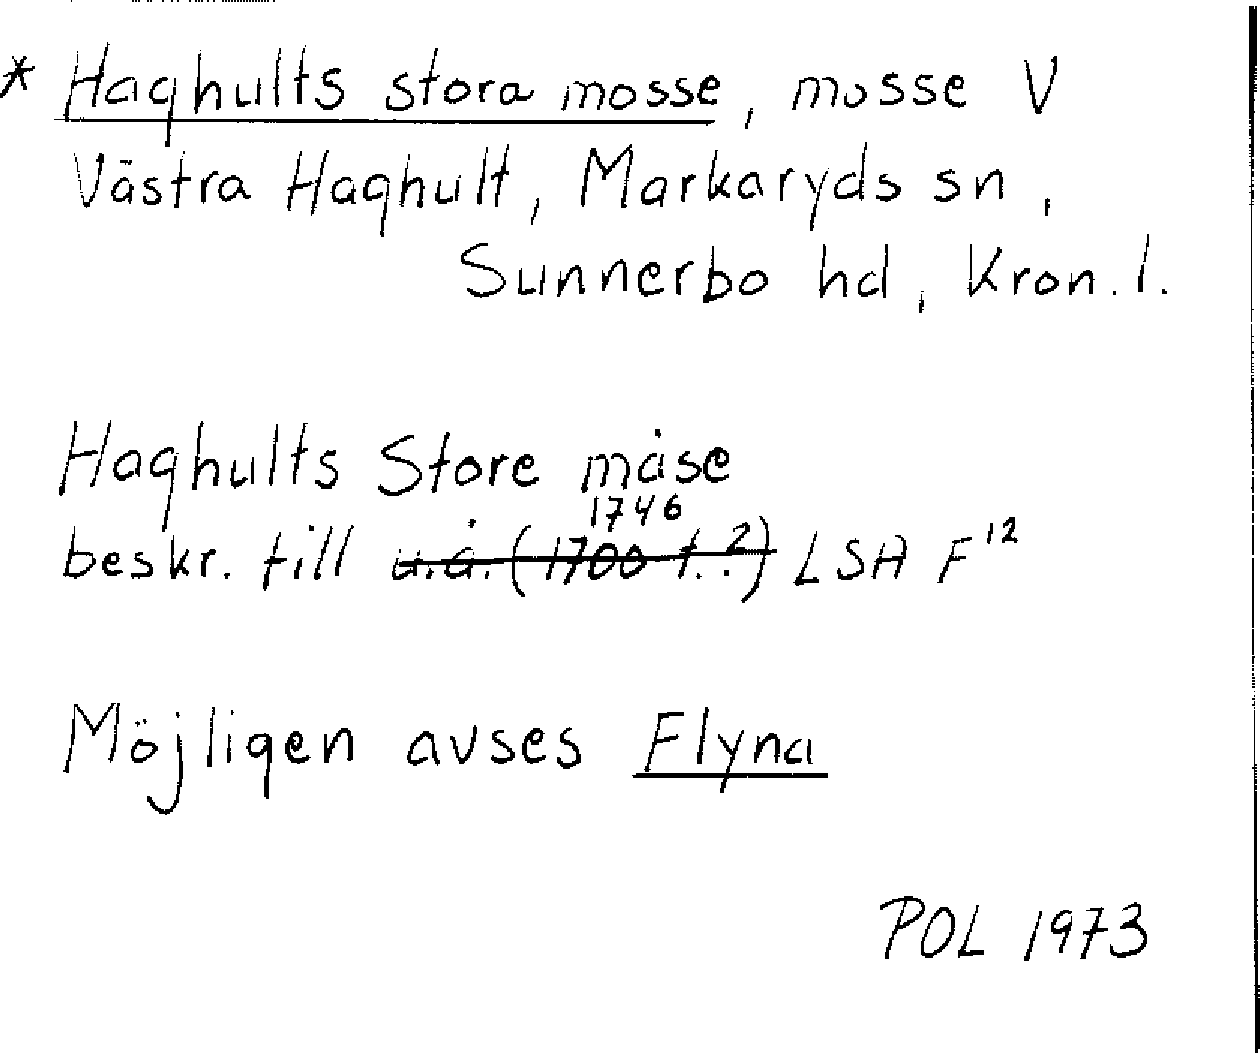 * Haghults stora mosse, mosse V
Västra Haghult, Markaryds sn,
Sunnerbo hd, Kron. l.
Haghults Store måse
1746
beskr. till u.å. (1700 t.?) LSA F 12
Möjligen avses Flyna
POL 1973